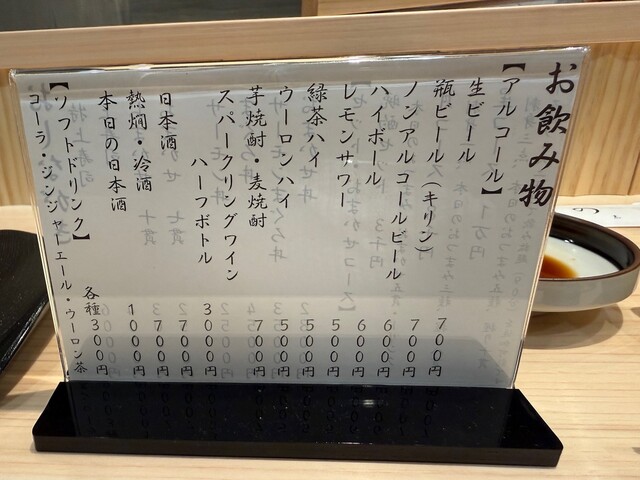 お飲み物
【アルコール】
生ビール 700円
瓶ビール(キリン) 700円
ノンアルコールビール 600円
ハイボール 600円
レモンサワー 500円
緑茶ハイ 500円
ウーロンハイ 500円
芋焼酎・麦焼酎 700円
スパークリングワイン
ハーフボトル 3000円
日本酒 700円
熱燗・冷酒 700円
本日の日本酒 1000円
【ソフトドリンク】 各種300円
コーラ・ジンジャーエール・ウーロン茶